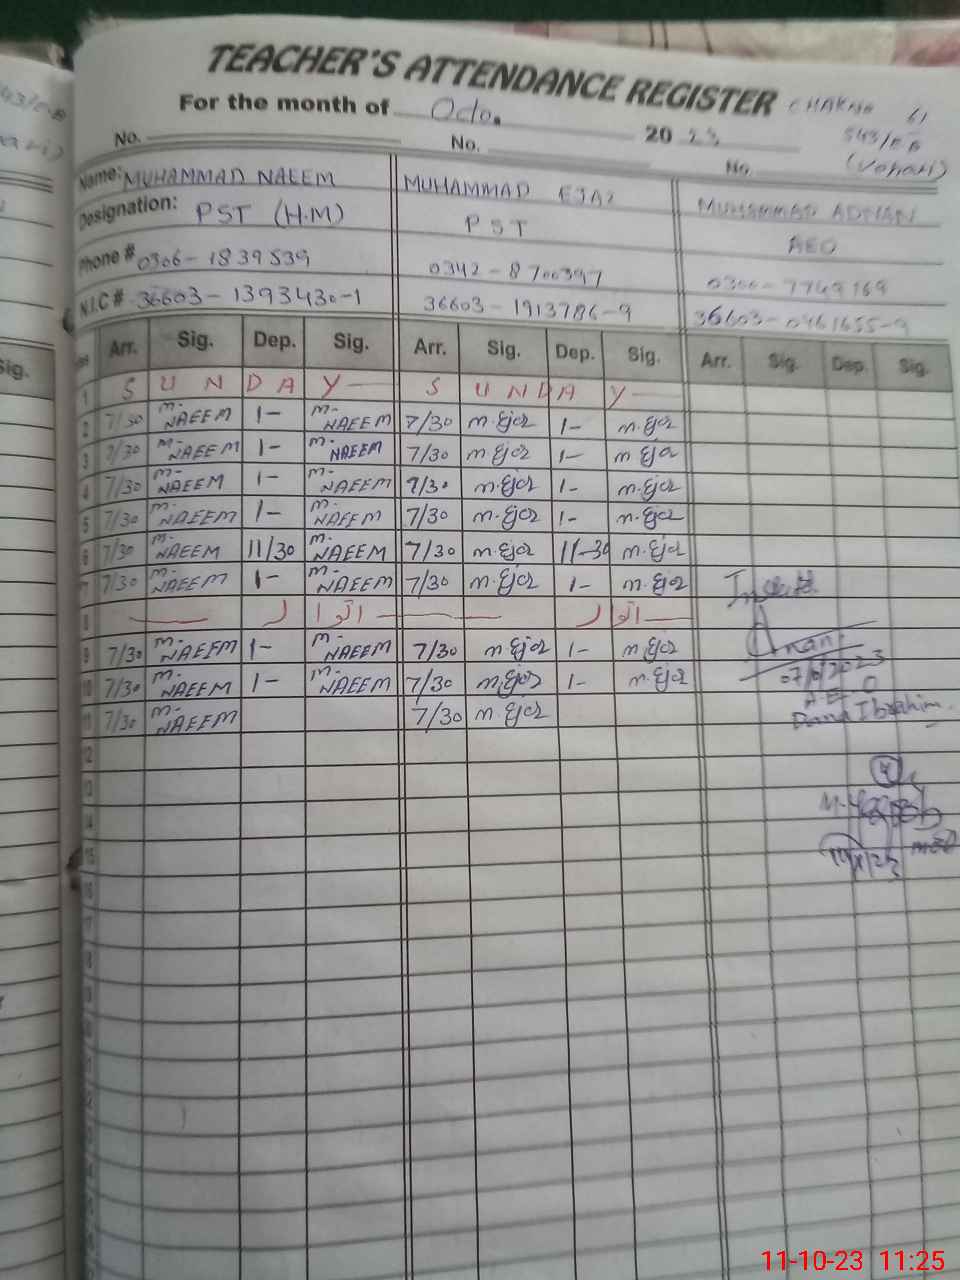 TEACHER'S ATTENDANCE REGISTER
For the month of Octo. 2023
543/EB
(Vehari)
No. No. No.
Name: MUHAMMAD NAEEM MUHAMMAD EJAZ MUHAMMAD ADNAN
Designation: PST (H.M) PST AEO
Phone # 0306-1839539 0342-8700397
N.I.C # 36603-1393430-1 36603-1913786-9 36603-0461655-9
Arr. Sig. Dep. Sig. Arr. Sig. Dep. Sig. Arr. Sig. Dep. Sig.
1 SUNDAY SUNDAY
2 7/30 M-NAEEM 1- M-NAEEM 7/30 m.Ejaz 1- m.Ejaz
3 7/30 M-NAEEM 1- M-NAEEM 7/30 m.Ejaz 1- m.Ejaz
4 7/30 M-NAEEM 1- M-NAEEM 7/30 m.Ejaz 1- m.Ejaz
5 7/30 M-NAEEM 1- M-NAEEM 7/30 m.Ejaz 1- m.Ejaz
6 7/30 M-NAEEM 11/30 M-NAEEM 7/30 m.Ejaz 11-30 m.Ejaz
7 7/30 M-NAEEM 1- M-NAEEM 7/30 m.Ejaz 1- m.Ejaz
8 اتوار اتوار
9 7/30 M-NAEEM 1- M-NAEEM 7/30 m.Ejaz 1- m.Ejaz
10 7/30 M-NAEEM 1- M-NAEEM 7/30 m.Ejaz 1- m.Ejaz
11 7/30 M-NAEEM 7/30 m.Ejaz
A.E.O
Ibrahim
12
13
14
15
16
17
18
Sig.
11-10-23 11:25